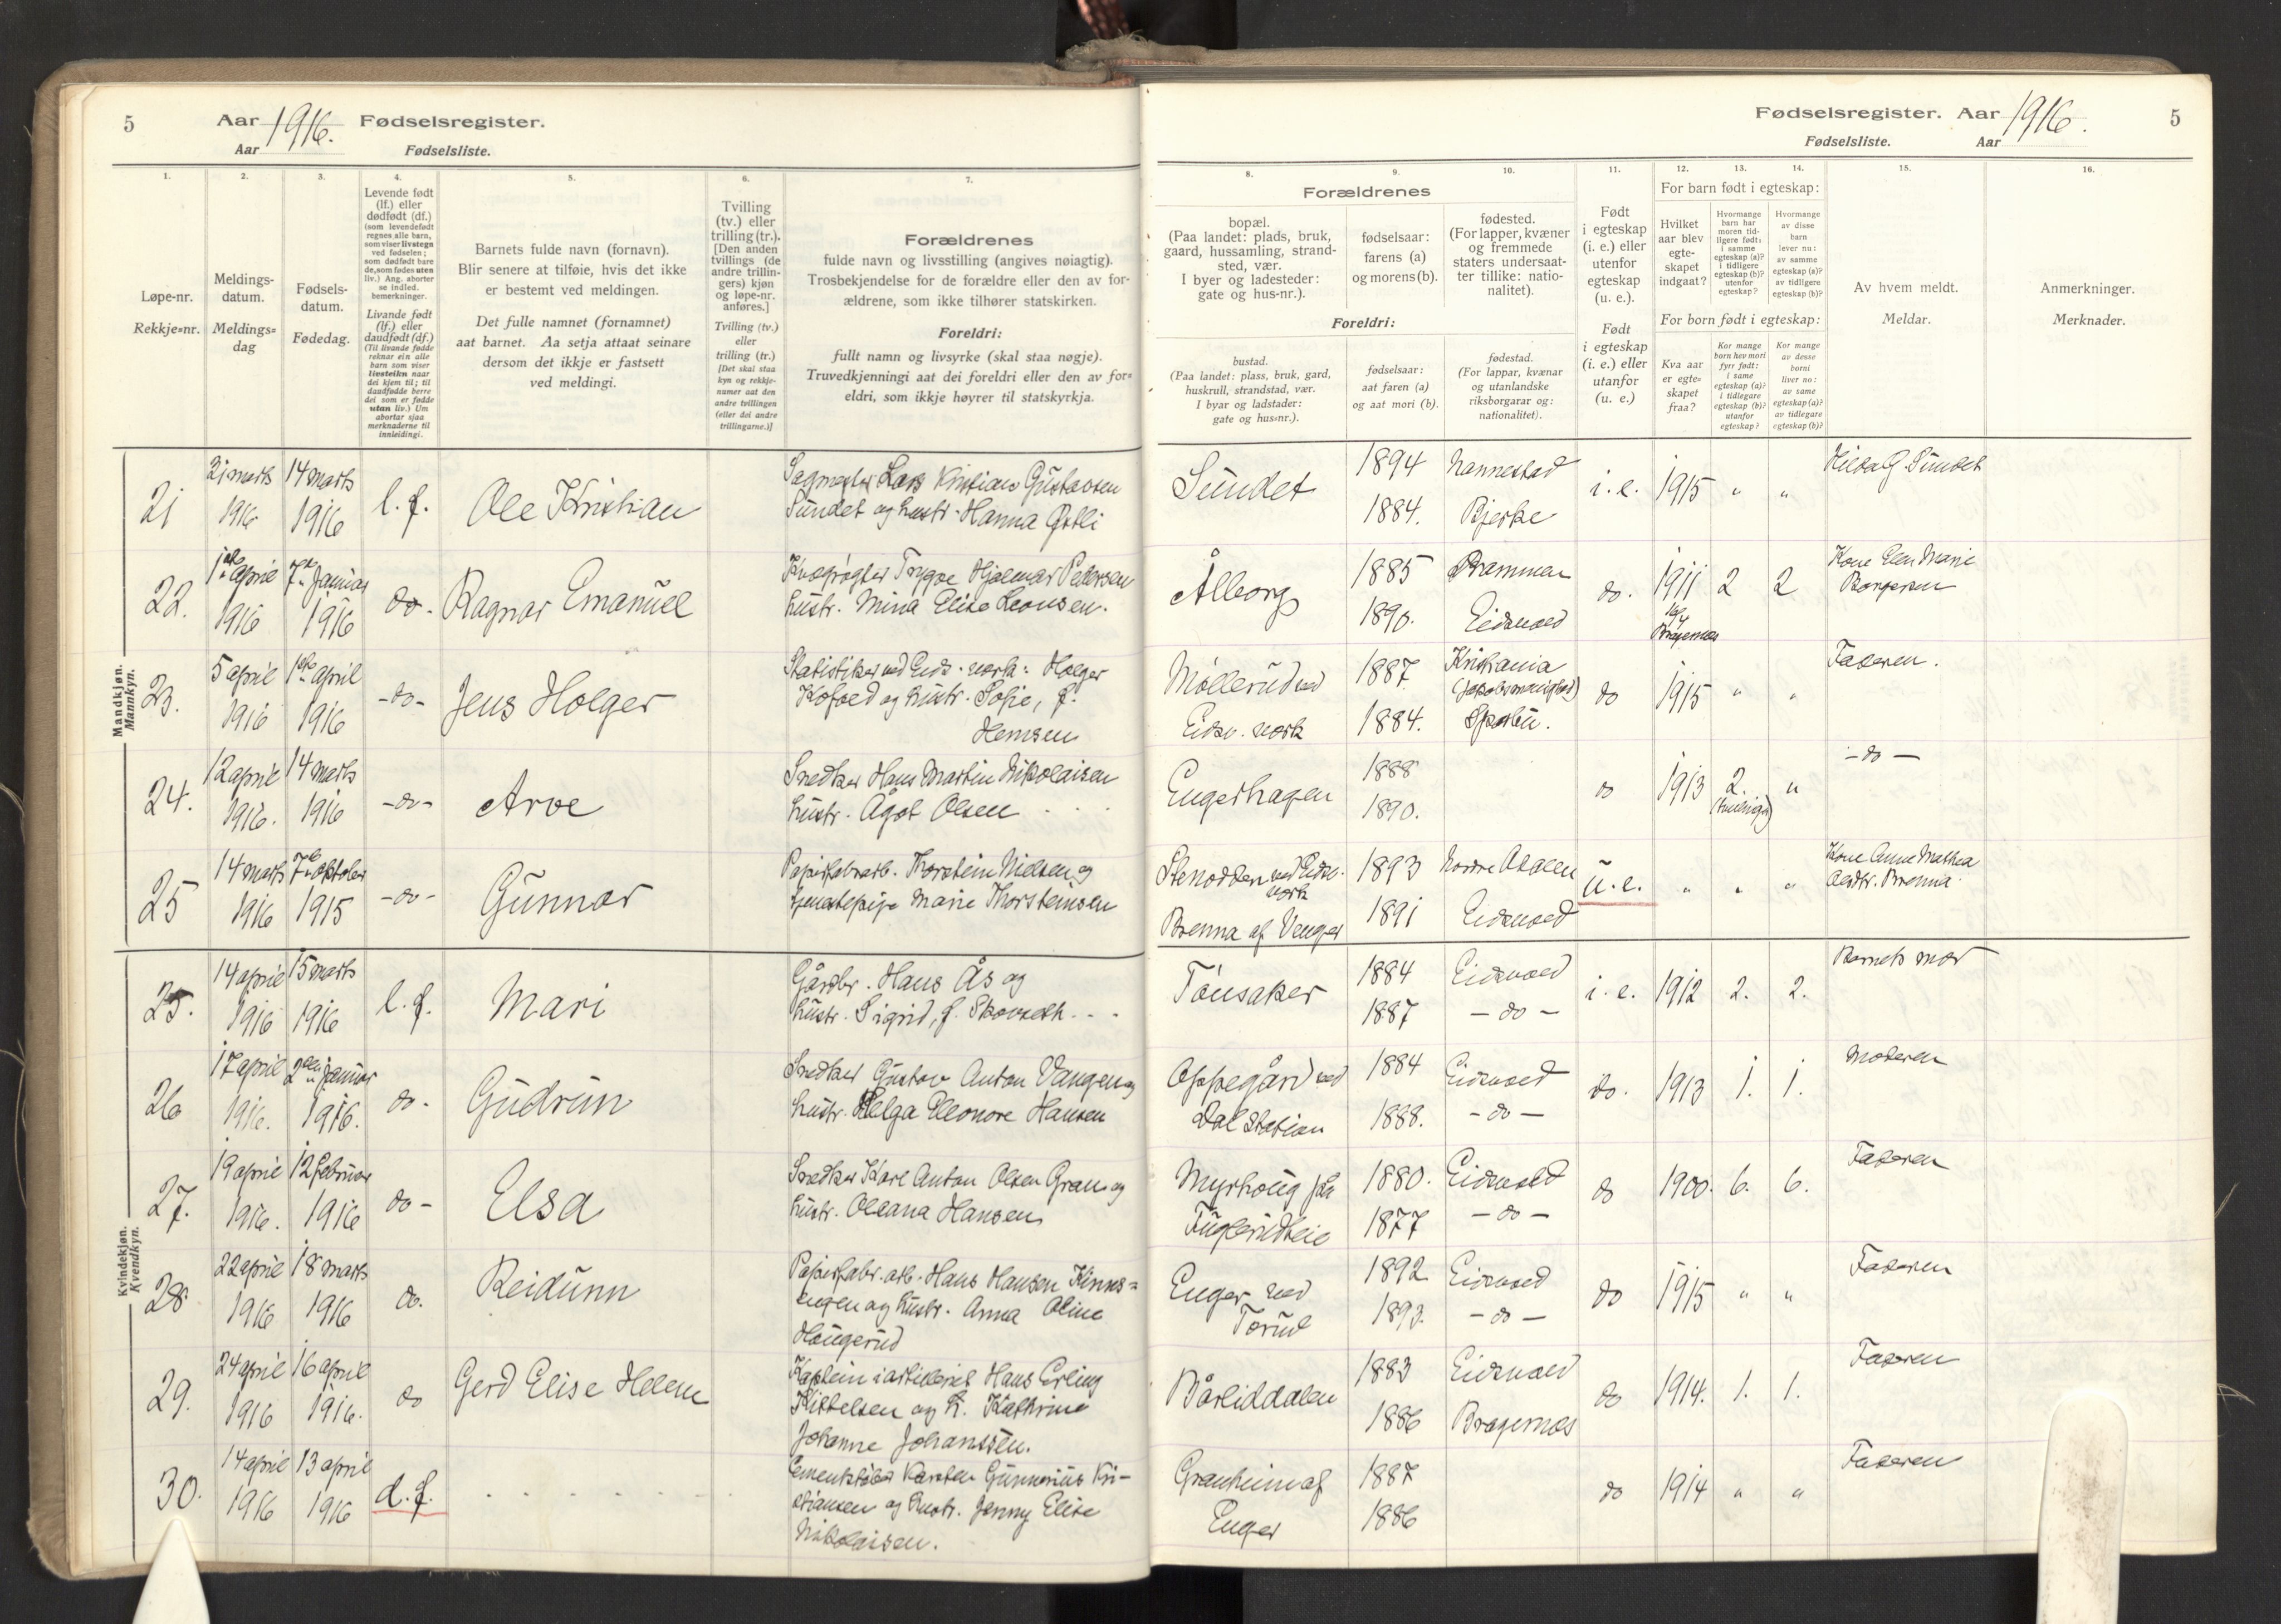 5
Aar 1916. Fødselsregister.
Aar Fødselsliste.
1.
2.
3.
4.
5.
6.
7.
Løpe-nr.
Rekkje=nr.
Meldings-
datum.
Meldings=
dag
Fødsels-
datum.
Fødedag.
Levende født
(lf.) eller
dødfødt (df.)
(som levendefødt
regnes alle barn,
som viser livstegn
ved fødselen;
som dødfødt bare
de, som fødes uten
liv.) Ang. aborter
se indled.
bemerkninger.
Livande født
(lf.) eller
daudfødt (df.)
(Til livande fødde
reknar ein alle
barn som viser
livsteikn naar
dei kjem til; til
daudfødde berre
dei som er fødde
utan liv.) Um
abortar sjaa
merknaderne til
innleidingi.
Barnets fulde navn (fornavn).
Blir senere at tilføie, hvis det ikke
er bestemt ved meldingen.
Det fulle namnet (fornamnet)
aat barnet. Aa setja attaat seinare
dersom det ikkje er fastsett
ved meldingi.
Tvilling
(tv.) eller
trilling (tr.).
[Den anden
tvillings (de
andre trillin-
gers) kjøn
og løpe-nr.
anføres.]
Tvilling (tv.)
eller
trilling (tr.)
[Det skal staa
kyn og rekkje-
numer aat den
andre tvillingen
(eller dei andre
trillingarne.)]
Forældrenes
fulde navn og livsstilling (angives nøiagtig).
Trosbekjendelse for de forældre eller den av for-
ældrene, som ikke tilhører statskirken.
Foreldri:
fullt namn og livsyrke (skal staa nøgje).
Truvedkjenningi aat dei foreldri eller den av for=
eldri, som ikkje høyrer til statskyrkja.
Mandkjøn.
Mannkyn.
21
31 marts
1916
14 marts
1916
l.f.
Ole Kristian
Sagmester Lars Kristian Gustavsen
Sundet og hustr. Hanna Østli
22.
1ste april
1916
7de Januar
1916
do.
Ragnar Emanuel
Kvægrøgter Trygve Hjalmar Pedersen
hustr. Mina Elise Leonsen.
23.
5 april
1916
1ste april
1916
-do-
Jens Holger
Statistiker ved Eids. verk: Holger
Kofoed og hustr. Sofie, f.
Hemsen
24.
12 april
1916.
14 marts
1916
-do-
Arve
Snedker Hans Martin Nikolaisen
hustr. Ågot Olsen
25
14 marts
1916
7de oktober
1915
-do-
Gunnar
Papirfabrarb. Thorstein Nielsen og
tjenestepige Marie Thorsteinsen
Kvindekjøn.
Kvendkyn.
25.
14 april
1916
15 marts
1916
l.f.
Mari
Gårdbr. Hans Ås og
hustr. Sigrid, f. Skovseth
26
17 april
1916.
2den januar
1916.
do.
Gudrun
Snedker Gustav Anton Vangen og
hustr. Helga Eleonore Hansen
27.
19 april
1916.
12 februar
1916
do-
Elsa
Snedker Karl Anton Olsen Gran og
hustr. Oleana Hansen
28
22 april
1916
18 marts
1916
do.
Reidunn
Papirfabr. arb. Hans Hansen Kinns=
engen og hustr. Anna Oline
Haugerud
29.
24 april
1916
16 april
1916.
do
Gerd Elise Helene
Kaptein i artilleriet Hans Erling
Kittelsen og h. Kathrine
Johanne Johanssen.
30.
14 april
1916
13 april
1916
d.f.
Cementstøber Karsten Gunnerius Kri-
stiansen og hustr. Jenny Elise
Nikolaisen.
Fødselsregister. Aar 1916.
Fødselsliste. Aar
5
8.
9.
10.
11.
12.
13.
14.
15.
16.
Forældrenes
bopæl.
(Paa landet: plads, bruk,
gaard, hussamling, strand-
sted, vær.
I byer og ladesteder:
gate og hus-nr.).
fødselsaar:
farens (a)
og morens (b).
fødested.
(For lapper, kvæner
og fremmede
staters undersaat-
ter tillike: natio-
nalitet).
Foreldri:
bustad.
(Paa landet: plass, bruk, gard,
huskrull, strandstad, vær.
I byar og ladstader:
gate og hus=nr.).
fødselsaar:
aat faren (a)
og aat mori (b).
fødestad.
(For lappar, kvænar
og utanlandske
riksborgarar og:
nationalitet).
Født
i egteskap
(i. e.) eller
utenfor
egteskap
(u. e.).
Født
i egteskap
(i. e.) eller
utanfor
(u. e.)
For barn født i egteskap:
Hvilket
aar blev
egte-
skapet
indgaat?
Hvormange
barn har
moren tid-
ligere født:
i samme
egteskap (a)?
i tidligere
egteskap (b)?
utenfor
egteskap?
Hvormange
av disse
barn
lever nu:
av samme
egteskap (a)?
av tidligere
egteskap (b)?
For born født i egteskap:
Kva aar
er egte-
skapet
fraa?
Kor mange
born hev mori
fyrr født:
i same
egteskap (a)?
i tidlegare
egteskap (b)?
utanfor
egteskap?
Kor mange
av desse
borni
liver no:
av same
egteskap (a)?
av tidlegare
egteskap (b)?
Av hvem meldt.
Meldar.
Anmerkninger.
Merknader.
Sundet
1894
1884.
Nannestad
Bjerke
i.e.
1915
"
"
Hilda G. Sundet
Ålborg
1885
1890.
Drammen
Eidsvold
do.
1911
Bragernes
2
2
Kone Elen Marie
Borgersen
Møllerud ved
Eidsv. verk
1887
1884.
Kristiania
Sparbu.
do
1915
"
"
Faderen.
Engerhagen
1888
1890.
do
1913
2.
(tvillinger)
"
-do-
Stenodden ved Eidsv.
verk
Brenna af Venger
1893
1891
Nordre Odalen
Eidsvold
u.e.
"
"
"
Kone Anne Mathea
Brenna
Tønsaker
1884
1887
Eidsvold
-do-
i.e.
1912
2.
2.
Barnets mor
Oppegård ved
Dal Station
1884
1888.
Eidsvold
-do-
do.
1913
1.
1.
Moderen
Myrhoug fra
Fuglerudeie
1880.
1877
Eidsvold
-do-
do
1900.
6.
6.
Faderen
Enger ved
Torud
1892
1893.
Eidsvold
-do-
do
1915
"
"
Faderen
Bårliddalen
1883
1886
Eidsvold
Bragernes
do
1914.
1.
1.
Faderen
Granheim af
Enger
1887
1886
do
1914
"
"
Faderen